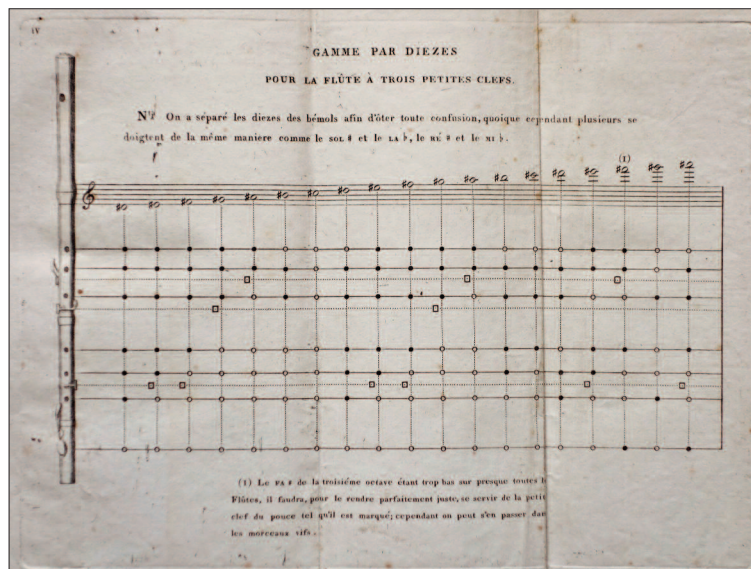 IV
GAMME PAR DIEZES
POUR LA FLÛTE À TROIS PETITES CLEFS.
On a séparé les diezes des bémols afin d'ôter toute confusion, quoique cependant plusieurs se
doigtent de la même maniere comme le SOL # et le LA ♭, le RÉ # et le MI ♭.
(1)
(1) Le FA # de la troisiéme octave étant trop bas sur presque toutes l
Flûtes, il faudra, pour le rendre parfaitement juste, se servir de la petit
clef du pouce tel qu'il est marqué; cependant on peut s'en passer dan
les morceaux vifs.